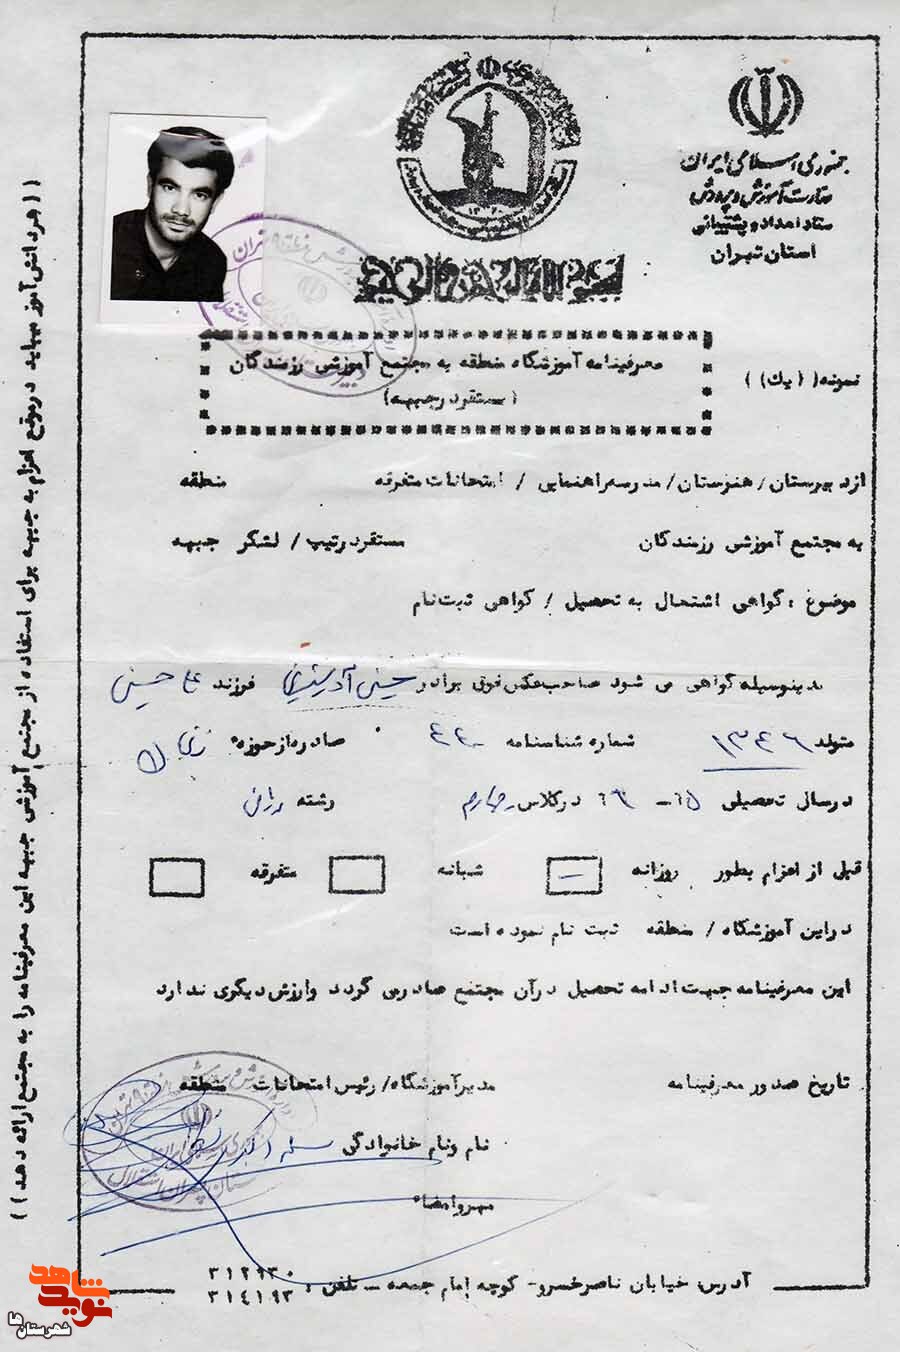 جمهوری اسلامی ایران
وزارت آموزش و پرورش
ستاد امداد و پشتیبانی
استان تهران
۱۳۶۰
بسم الله الرحمن الرحیم
نمونه ( ( یک ) )
معرفینامه آموزشگاه منطقه به مجتمع آموزشی رزمندگان
( مستقر در جبهه )
از دبیرستان / هنرستان / مدرسه راهنمایی / امتحانات متفرقه منطقه
به مجتمع آموزشی رزمندگان مستقر در تیپ / لشگر جبهه
موضوع : گواهی اشتغال به تحصیل / گواهی ثبت نام
بدینوسیله گواهی می شود صاحب عکس فوق برادر حسینی فرزند حسین
متولد ۱۳۴۶ شماره شناسنامه ۴۴۰ صادره از حوزه
در سال تحصیلی ۶۵ - ۶۴ در کلاس چهارم رشته
قبل از اعزام بطور روزانه شبانه متفرقه
در این آموزشگاه / منطقه ثبت نام نموده است
این معرفینامه جهت ادامه تحصیل در آن مجتمع صادر می گردد و ارزش دیگری ندارد
تاریخ صدور معرفینامه
مدیر آموزشگاه / رئیس امتحانات منطقه
نام و نام خانوادگی
مهر و امضاء
آدرس : خیابان ناصرخسرو - کوچه امام جمعه - تلفن : ۳۱۲۹۳۰
۳۱۴۱۹۳
( ( هر دانش آموز میباید در موقع اعزام به جبهه برای استفاده از مجتمع آموزشی جبهه این معرفینامه را به مجتمع ارائه دهد ) )
نوید شاهد
شهرستان ها